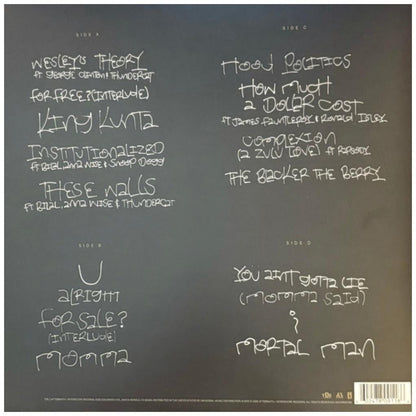 SIDE A
WESLEY'S THEORY
ft GEORGE CLINTON & THUNDERCAT
FOR FREE? (INTERLUDE)
KING KUNTA
INSTITUTIONALIZED
ft BILAL, ANNA WISE & SNOOP DOGG
THESE WALLS
ft BILAL, ANNA WISE & THUNDERCAT
SIDE B
U
ALRIGHT
FOR SALE?
(INTERLUDE)
MOMMA
SIDE C
HOOD POLITICS
HOW MUCH
A DOLLAR COST
ft JAMES FAUNTLEROY & RONALD ISLEY
COMPLEXION
(A ZULU LOVE) ft RAPSODY
THE BLACKER THE BERRY
SIDE D
YOU AIN'T GOTTA LIE
(MOMMA SAID)
i
MORTAL MAN